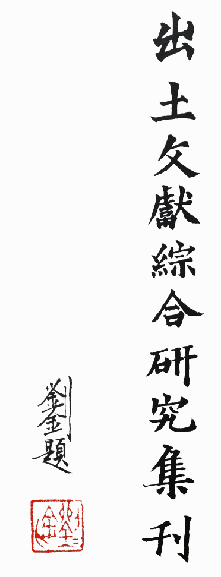 出土文獻綜合研究集刊
劉金題